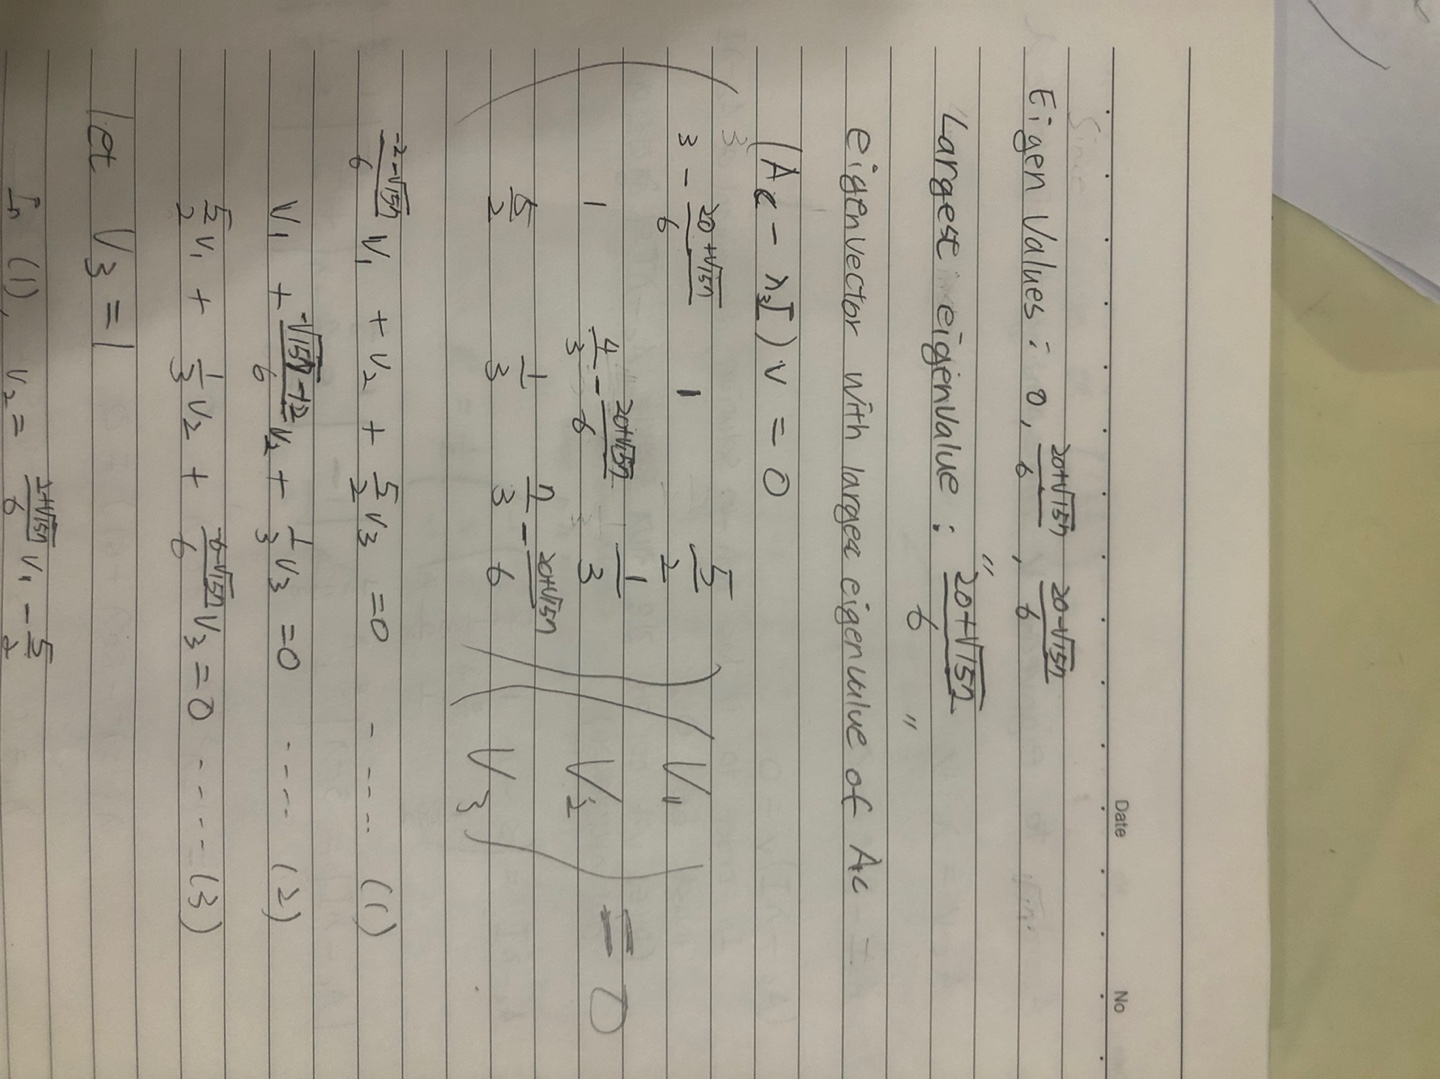 Date No
Eigen Values : 0, (20+√157)/6, (20-√157)/6
Largest eigenvalue : " (20+√157)/6 "
eigenvector with larges eigenvalue of Ac
(Ac - λ₃I) v = 0
3 - (20+√157)/6 1 5/2 V₁
1 4/3 - (20+√157)/6 1/3 V₂ = 0
5/2 1/3 7/3 - (20+√157)/6 V₃
(-2-√157)/6 V₁ + V₂ + 5/2 V₃ = 0 - ---- (1)
V₁ + (-√157-12)/6 V₂ + 1/3 V₃ = 0 ---- (2)
5/2 V₁ + 1/3 V₂ + V₃ = 0 ----- (3)
let V₃ = 1
In (1), V₂ = (2+√157)/6 V₁ - 5/2